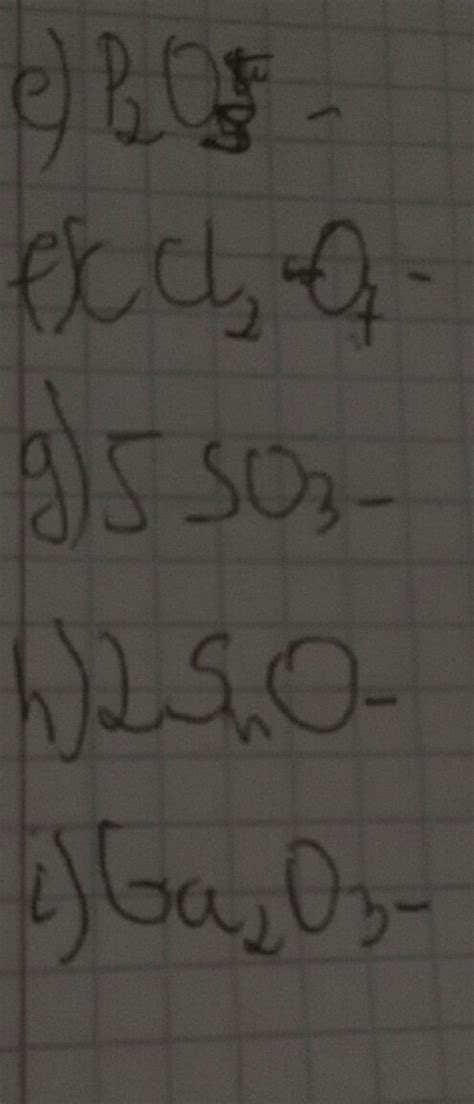 e) P₂O₅ -
f) Cl₂O₇ -
g) 5 SO₃ -
h) 2 SnO -
i) Ga₂O₃ -